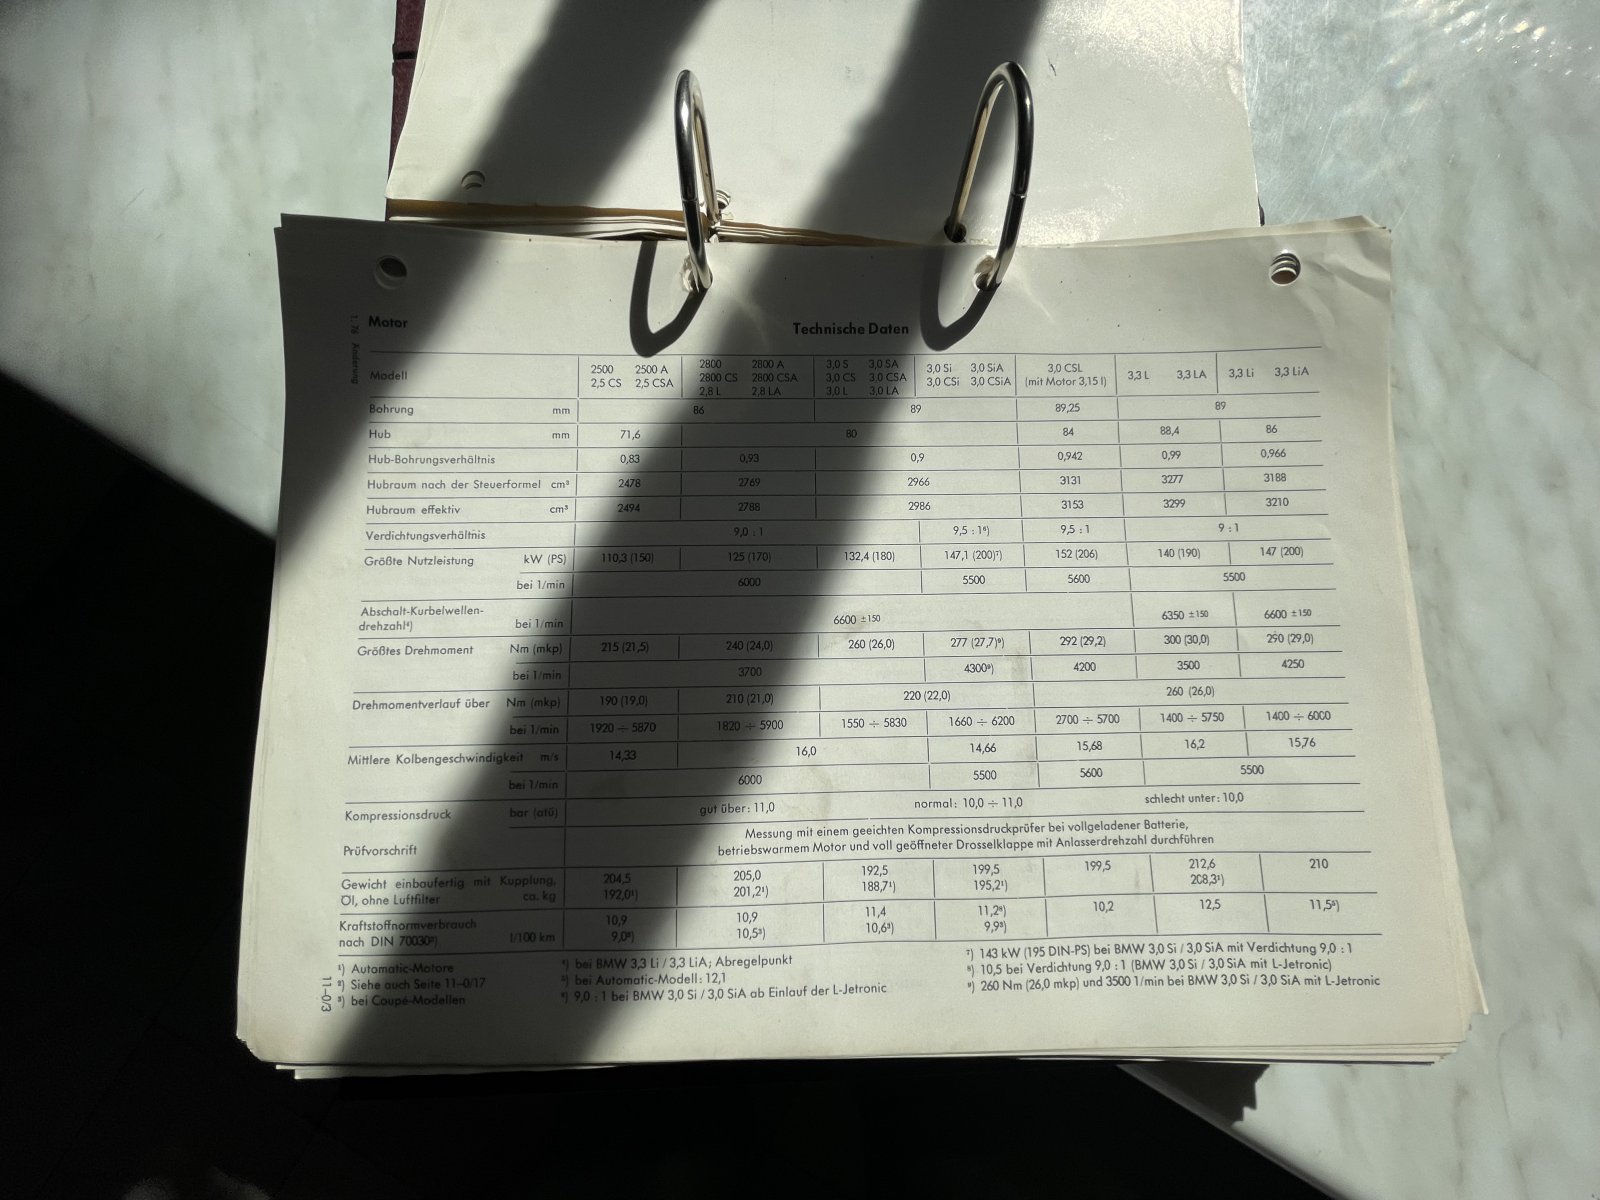 Motor
Technische Daten
1. 76 Änderung
Modell 2500 2500 A 2800 2800 A 3,0 S 3,0 SA 3,0 Si 3,0 SiA 3,0 CSL 3,3 L 3,3 LA 3,3 Li 3,3 LiA
2,5 CS 2,5 CSA 2800 CS 2800 CSA 3,0 CS 3,0 CSA 3,0 CSi 3,0 CSiA (mit Motor 3,15 l)
2,8 L 2,8 LA 3,0 L 3,0 LA
Bohrung mm 86 89 89,25 89
Hub mm 71,6 80 84 88,4 86
Hub-Bohrungsverhältnis 0,83 0,93 0,9 0,942 0,99 0,966
Hubraum nach der Steuerformel cm³ 2478 2769 2966 3131 3277 3188
Hubraum effektiv cm³ 2494 2788 2986 3153 3299 3210
Verdichtungsverhältnis 9,0 : 1 9,5 : 1⁶) 9,5 : 1 9 : 1
Größte Nutzleistung kW (PS) 110,3 (150) 125 (170) 132,4 (180) 147,1 (200)⁷) 152 (206) 140 (190) 147 (200)
bei 1/min 6000 5500 5600 5500
Abschalt-Kurbelwellen-
drehzahl⁴) bei 1/min 6600 ±150 6350 ±150 6600 ±150
Größtes Drehmoment Nm (mkp) 215 (21,5) 240 (24,0) 260 (26,0) 277 (27,7)⁹) 292 (29,2) 300 (30,0) 290 (29,0)
bei 1/min 3700 4300⁹) 4200 3500 4250
Drehmomentverlauf über Nm (mkp) 190 (19,0) 210 (21,0) 220 (22,0) 260 (26,0)
bei 1/min 1920 ÷ 5870 1820 ÷ 5900 1550 ÷ 5830 1660 ÷ 6200 2700 ÷ 5700 1400 ÷ 5750 1400 ÷ 6000
Mittlere Kolbengeschwindigkeit m/s 14,33 16,0 14,66 15,68 16,2 15,76
bei 1/min 6000 5500 5600 5500
Kompressionsdruck bar (atü) gut über: 11,0 normal: 10,0 ÷ 11,0 schlecht unter: 10,0
Prüfvorschrift Messung mit einem geeichten Kompressionsdruckprüfer bei vollgeladener Batterie,
betriebswarmem Motor und voll geöffneter Drosselklappe mit Anlasserdrehzahl durchführen
Gewicht einbaufertig mit Kupplung, 204,5 205,0 192,5 199,5 199,5 212,6 210
Öl, ohne Luftfilter ca. kg 192,0¹) 201,2¹) 188,7¹) 195,2¹) 208,3¹)
Kraftstoffnormverbrauch 10,9 10,9 11,4 11,2⁸) 10,2 12,5 11,5⁵)
nach DIN 70030²) l/100 km 9,0³) 10,5³) 10,6³) 9,9³)
¹) Automatic-Motore
²) Siehe auch Seite 11–0/17
³) bei Coupé-Modellen
⁴) bei BMW 3,3 Li / 3,3 LiA; Abregelpunkt
⁵) bei Automatic-Modell: 12,1
⁶) 9,0 : 1 bei BMW 3,0 Si / 3,0 SiA ab Einlauf der L-Jetronic
⁷) 143 kW (195 DIN-PS) bei BMW 3,0 Si / 3,0 SiA mit Verdichtung 9,0 : 1
⁸) 10,5 bei Verdichtung 9,0 : 1 (BMW 3,0 Si / 3,0 SiA mit L-Jetronic)
⁹) 260 Nm (26,0 mkp) und 3500 1/min bei BMW 3,0 Si / 3,0 SiA mit L-Jetronic
11–0/3